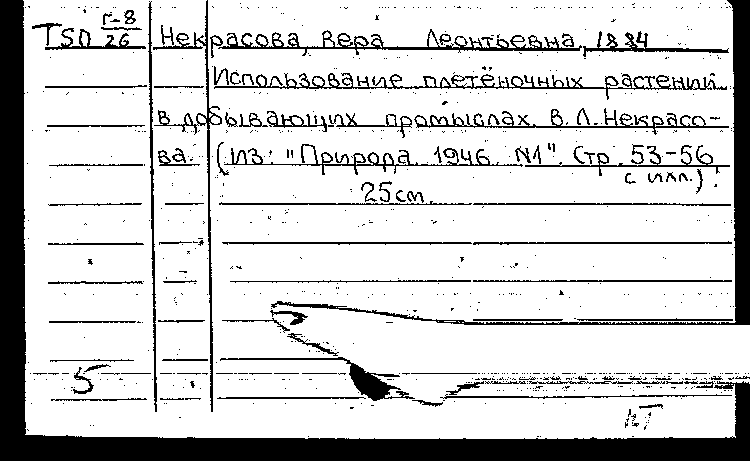 TSП Г-8/26 Некрасова, Вера Леонтьевна, 1884
Использование плетёночных растений
в добывающих промыслах. В. Л. Некрасо-
ва. (Из: "Природа. 1946. N1". Стр. 53-56
с илл.).
25см.
5